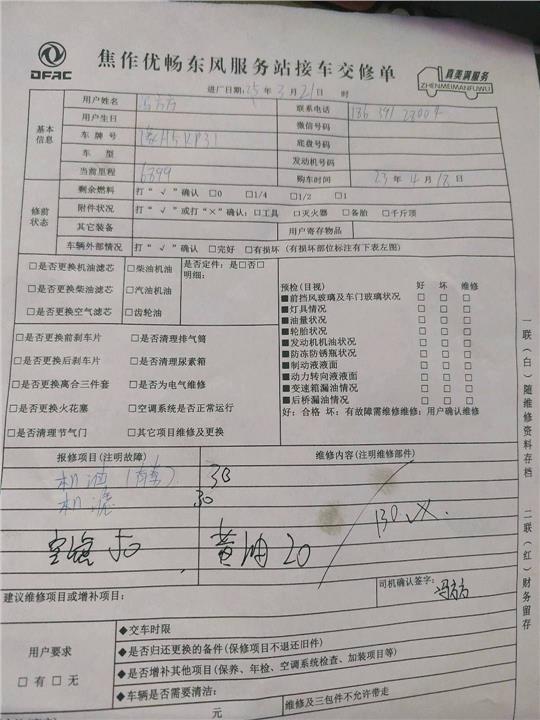 DFAC
焦作优畅东风服务站接车交修单
真美满服务
ZHENMEIMANFUWU
进厂日期: 25年 3月 21日 时
基本信息
用户姓名 冯方方 联系电话
用户生日 微信号码
车牌号 底盘号码
车型 发动机号码
当前里程 购车时间 23年4月18日
修前状态
剩余燃料 打"√"确认 □0 □1/4 □1/2 □1
附件状况 打"√"或打"×"确认: □工具 □灭火器 □备胎 □千斤顶
其它装备 用户寄存物品
车辆外部情况 打"√"确认 □完好 □有损坏 (有损坏部位标注有下表左图)
□是否更换机油滤芯 □柴油机油 是否定件: 是□否□
明细:
□是否更换柴油滤芯 □汽油机油
□是否更换空气滤芯 □齿轮油
预检(目视) 好 坏 维修
■前挡风玻璃及车门玻璃状况 □ □ □
■灯具情况 □ □ □
■油量状况 □ □ □
■轮胎状况 □ □ □
■发动机机油状况 □ □ □
■防冻防锈瓶状况 □ □ □
■制动液液面 □ □ □
■动力转向液液面 □ □ □
■变速箱漏油情况 □ □ □
■后桥漏油情况 □ □ □
好: 合格 坏: 有故障需维修维修: 用户确认维修
□是否更换前刹车片 □是否清理排气筒
□是否更换后刹车片 □是否清理尿素箱
□是否更换离合三件套 □是否为电气维修
□是否更换火花塞 □空调系统是否正常运行
□是否清理节气门 □其它项目维修及更换
报修项目(注明故障) 维修内容(注明维修部件)
机油
机滤 30
空滤 50 黄油 20
130
建议维修项目或增补项目:
司机确认签字: 冯方方
用户要求
□有 □无
◆交车时限
◆是否归还更换的备件(保修项目不退还旧件)
◆是否增补其他项目(保养、年检、空调系统检查、加装项目等)
◆车辆是否需要清洁:
元 维修及三包件不允许带走
一联(白)随维修资料存档 二联(红)财务留存